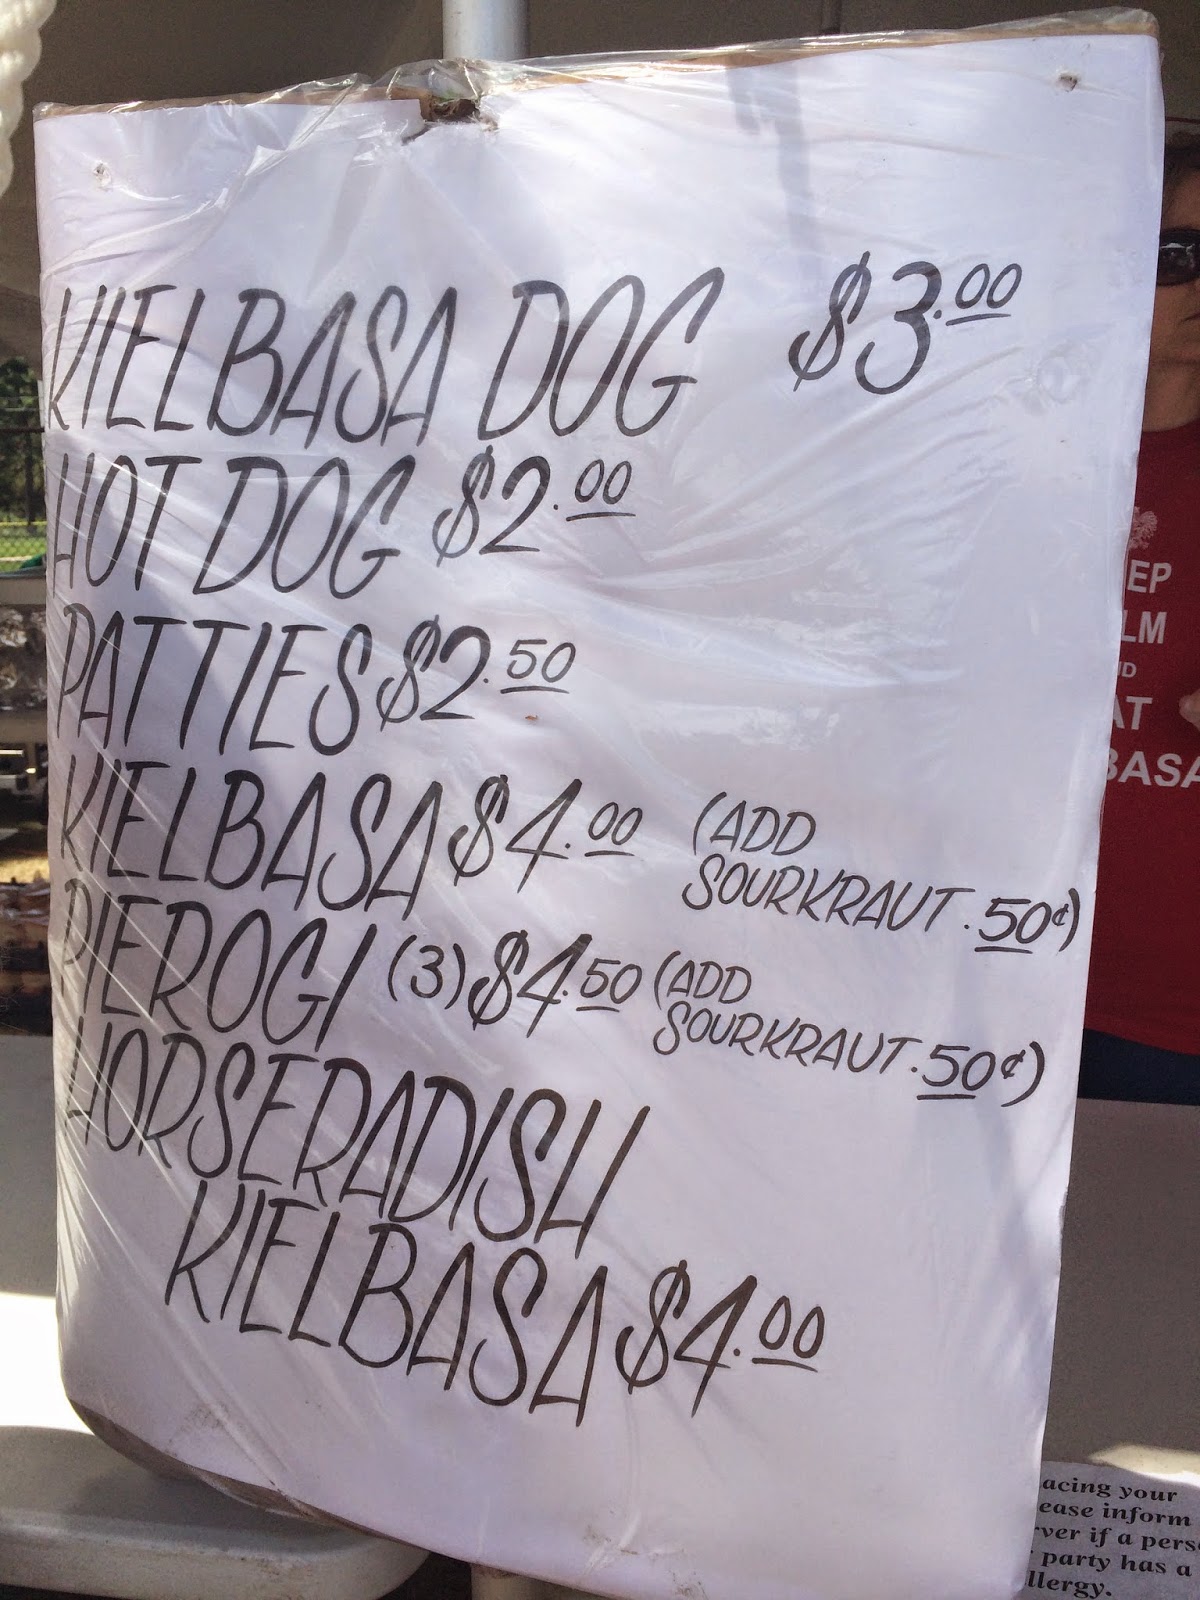 KIELBASA DOG $3.00
HOT DOG $2.00
PATTIES $2.50
KIELBASA $4.00 (ADD
SOURKRAUT .50¢)
PIEROGI (3) $4.50 (ADD
SOURKRAUT .50¢)
HORSERADISH
KIELBASA $4.00
EP
LM
ND
AT
BASA
acing your
ease inform
rver if a pers
party has a
llergy.